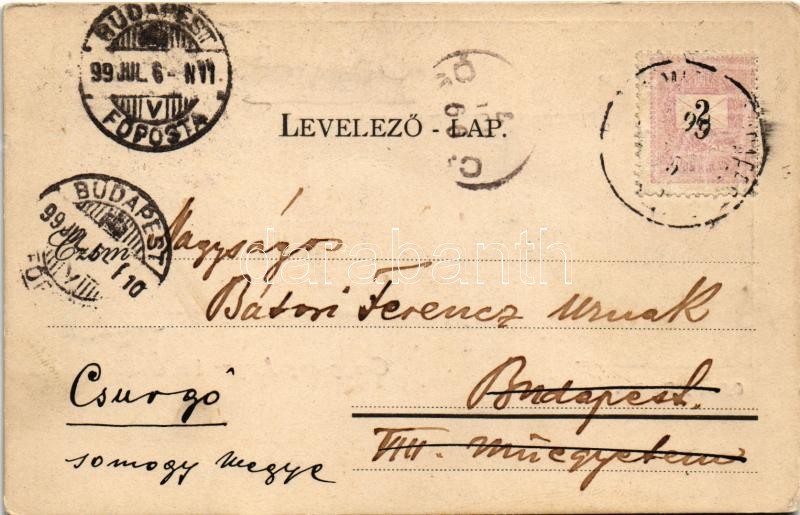 BUDAPEST
99 JUL. 6 - N VI
V
FŐPOSTA
LEVELEZŐ - LAP.
2
BUDAPEST
99 JUL
Czím
Nagyságos
Bátori Ferencz Urnak
Budapest.
VIII. Műegyetem
Csurgó
somogy megye
darabanth